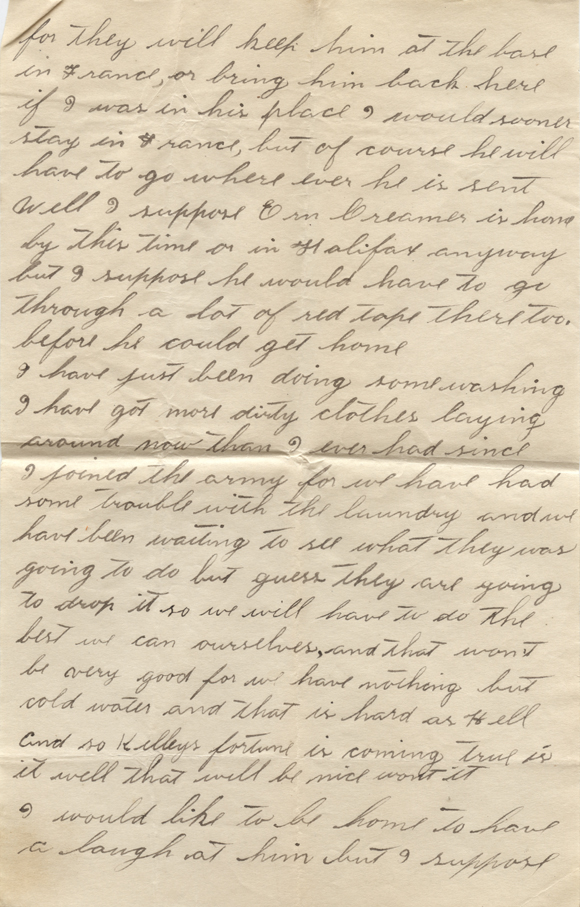 for they will keep him at the base
in France, or bring him back here
if I was in his place I would sooner
stay in France, but of course he will
have to go where ever he is sent
Well I suppose Ern Creamer is home
by this time or in Halifax anyway
but I suppose he would have to go
through a lot of red tape there too.
before he could get home
I have just been doing some washing
I have got more dirty clothes laying
around now than I ever had since
I joined the army for we have had
some trouble with the laundry and we
have been waiting to see what they was
going to do but guess they are going
to drop it so we will have to do the
best we can ourselves, and that won't
be very good for we have nothing but
cold water and that is hard as Hell
and so Killeys fortune is coming true is
it well that will be nice wont it
I would like to be home to have
a laugh at him but I suppose